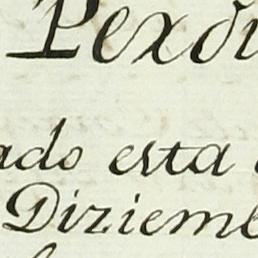 Perdi
ado esta
Diziemb